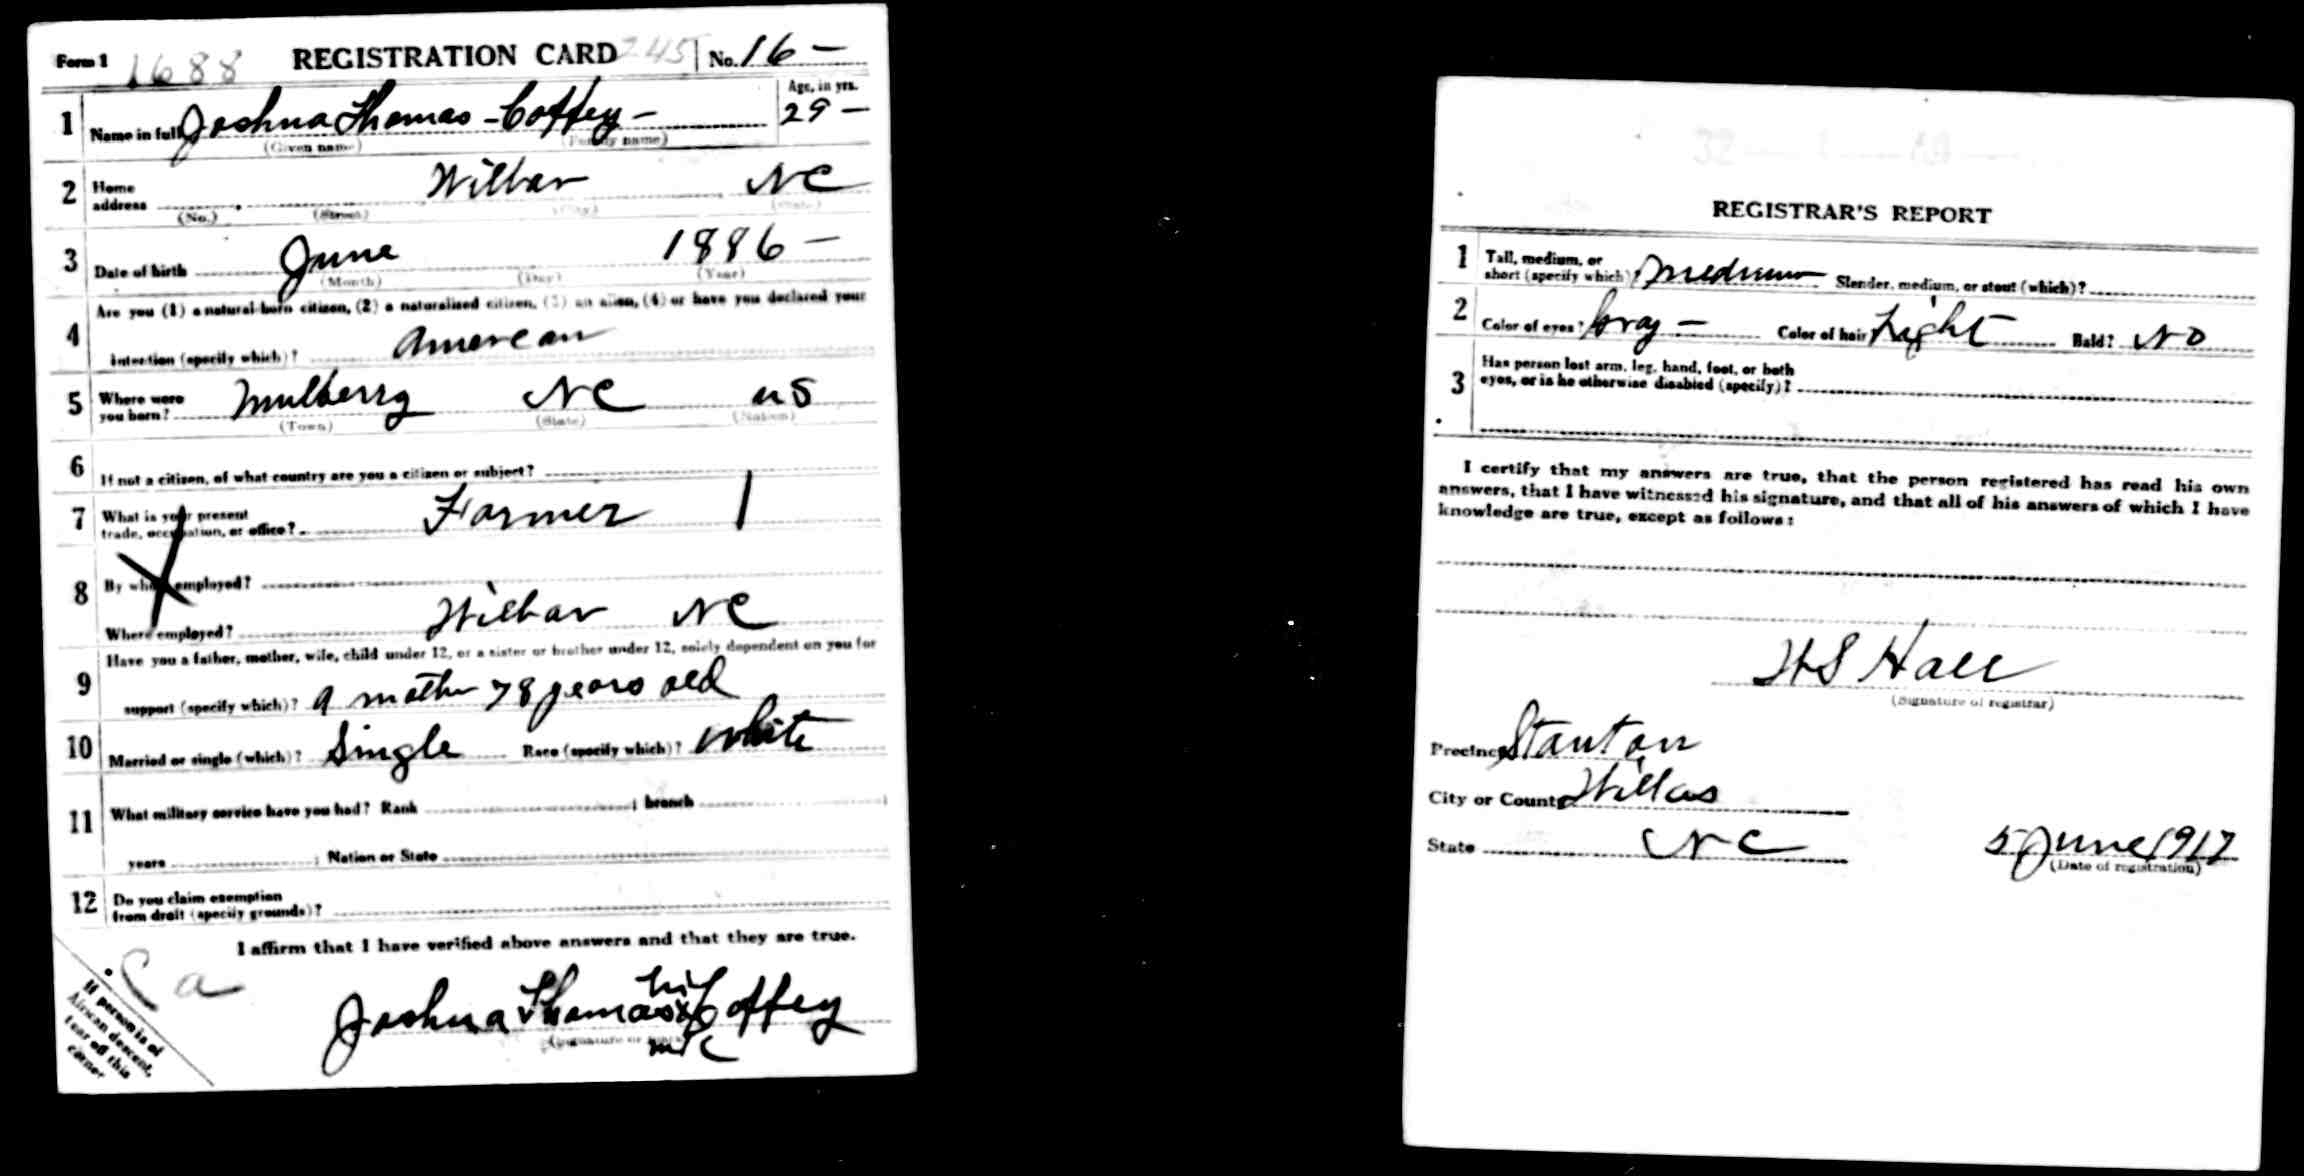 Form 1 1688 REGISTRATION CARD 245 No. 16 —
1 Name in full Joshua Thomas - Coffey - Age, in yrs. 29 —
(Given name) (Family name)
2 Home address Wilbar NC
(No.) (Street) (City) (State)
3 Date of birth June 1886 —
(Month) (Day) (Year)
4 Are you (1) a natural-born citizen, (2) a naturalized citizen, (3) an alien, (4) or have you declared your
intention (specify which)? Amerecan
5 Where were you born? Mulberry NC US
(Town) (State) (Nation)
6 If not a citizen, of what country are you a citizen or subject?
7 What is your present
trade, occupation, or office? Farmer 1
8 By whom employed?
Where employed? Wilbar NC
9 Have you a father, mother, wife, child under 12, or a sister or brother under 12, solely dependent on you for
support (specify which)? a mother 78 years old
10 Married or single (which)? Single Race (specify which)? White
11 What military service have you had? Rank ; branch
years ; Nation or State
12 Do you claim exemption
from draft (specify grounds)?
I affirm that I have verified above answers and that they are true.
a
If person is of
African descent,
tear off this
corner
his
Joshua Thomas x Coffey
(Signature or mark)
REGISTRAR'S REPORT
1 Tall, medium, or
short (specify which)? medium Slender, medium, or stout (which)?
2 Color of eyes? Gray — Color of hair Light Bald? No
3 Has person lost arm, leg, hand, foot, or both
eyes, or is he otherwise disabled (specify)?
I certify that my answers are true, that the person registered has read his own
answers, that I have witnessed his signature, and that all of his answers of which I have
knowledge are true, except as follows:
HS Hall
(Signature of registrar)
Precinct Stanton
City or County Wilkes
State NC 5 June 1917
(Date of registration)